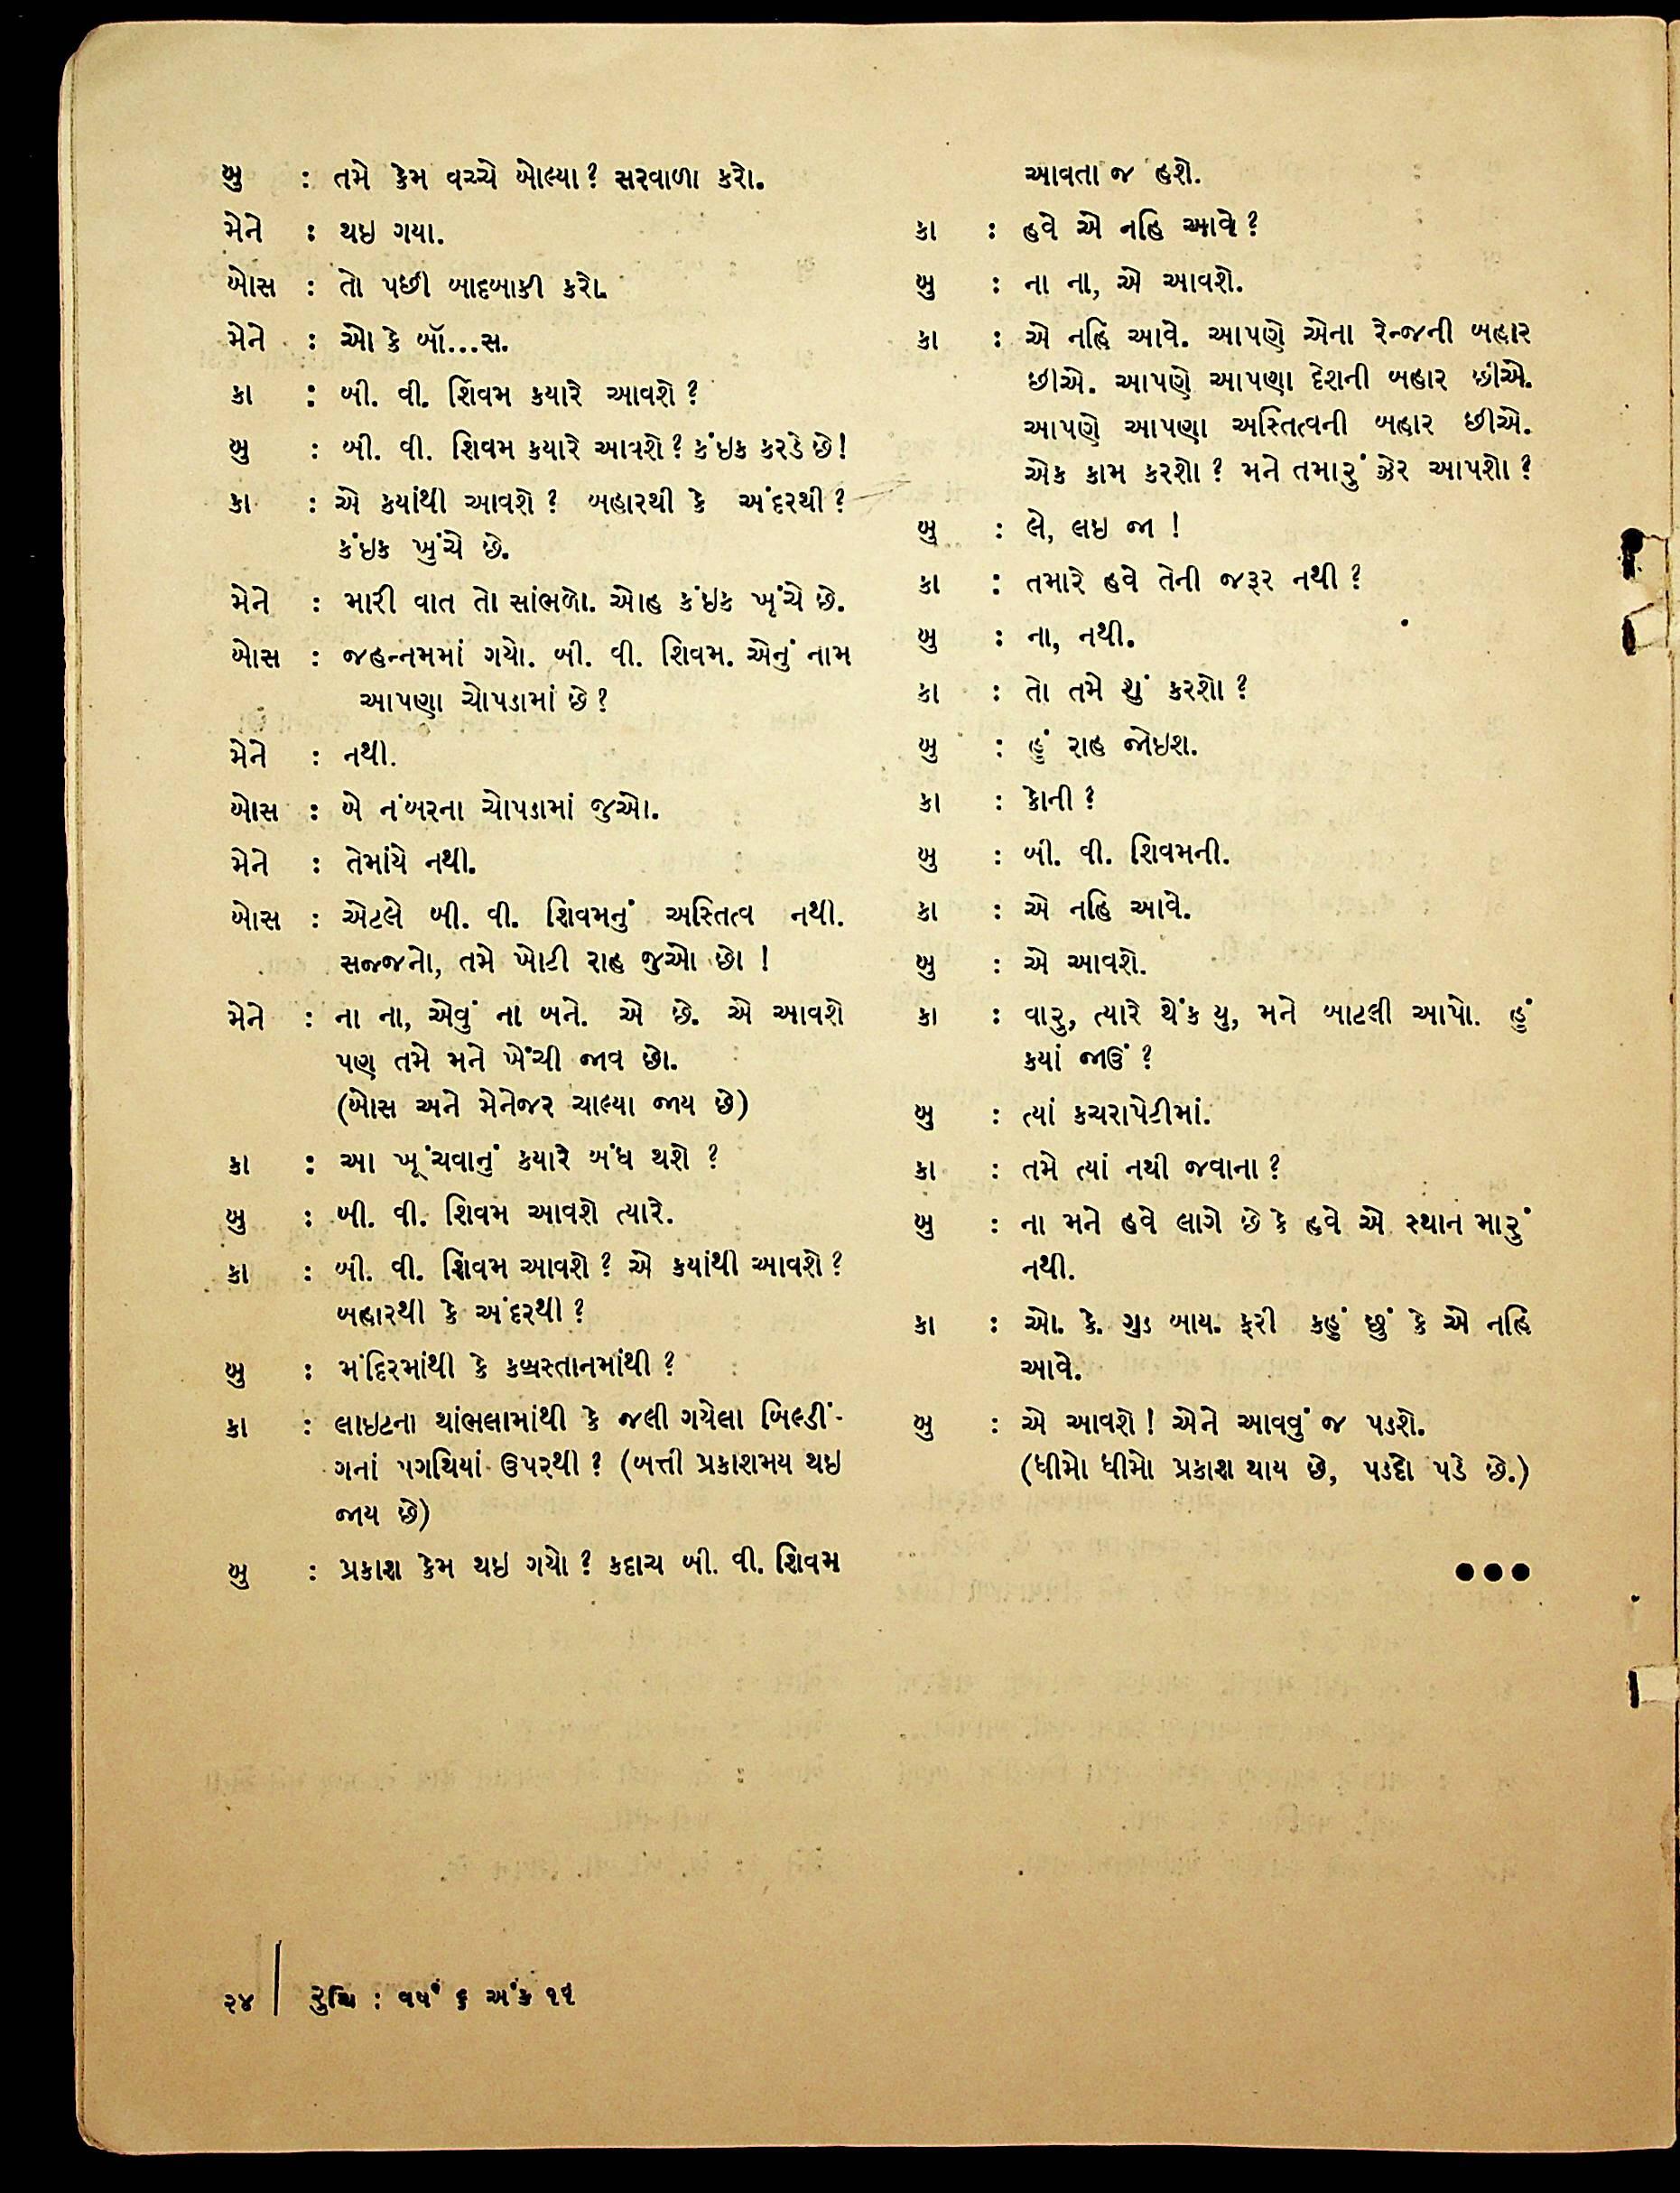 બુ : તમે કેમ વચ્ચે બોલ્યા? સરવાળા કરો.
મેને : થઇ ગયા.
બોસ : તો પછી બાદબાકી કરો.
મેને : ઓ કે બૉ...સ.
કા : બી. વી. શિવમ કયારે આવશે?
બુ : બી. વી. શિવમ કયારે આવશે? કંઇક કરડે છે!
કા : એ કયાંથી આવશે? બહારથી કે અંદરથી?
કંઇક ખુંચે છે.
મેને : મારી વાત તો સાંભળો. ઓહ કંઇક ખૂંચે છે.
બોસ : જહન્નમમાં ગયો. બી. વી. શિવમ. એનું નામ
આપણા ચોપડામાં છે?
મેને : નથી.
બોસ : બે નંબરના ચોપડામાં જુઓ.
મેને : તેમાંયે નથી.
બોસ : એટલે બી. વી. શિવમનું અસ્તિત્વ નથી.
સજ્જનો, તમે ખોટી રાહ જુઓ છો !
મેને : ના ના, એવું ના બને. એ છે. એ આવશે
પણ તમે મને ખેંચી જાવ છો.
(બોસ અને મેનેજર ચાલ્યા જાય છે)
કા : આ ખૂંચવાનું કયારે બંધ થશે ?
બુ : બી. વી. શિવમ આવશે ત્યારે.
કા : બી. વી. શિવમ આવશે? એ કયાંથી આવશે?
બહારથી કે અંદરથી?
બુ : મંદિરમાંથી કે કબ્રસ્તાનમાંથી?
કા : લાઇટના થાંભલામાંથી કે જલી ગયેલા બિલ્ડીં-
ગનાં પગથિયાં ઉપરથી? (બત્તી પ્રકાશમય થઇ
જાય છે)
બુ : પ્રકાશ કેમ થઇ ગયો? કદાચ બી. વી. શિવમ
આવતા જ હશે.
કા : હવે એ નહિ આવે?
બુ : ના ના, એ આવશે.
કા : એ નહિ આવે. આપણે એના રેન્જની બહાર
છીએ. આપણે આપણા દેશની બહાર છીએ.
આપણે આપણા અસ્તિત્વની બહાર છીએ.
એક કામ કરશો? મને તમારું ઝેર આપશો?
બુ : લે, લઇ જા !
કા : તમારે હવે તેની જરૂર નથી?
બુ : ના, નથી.
કા : તો તમે શું કરશો?
બુ : હું રાહ જોઇશ.
કા : કોની?
બુ : બી. વી. શિવમની.
કા : એ નહિ આવે.
બુ : એ આવશે.
કા : વારુ, ત્યારે થેંક યુ, મને બાટલી આપો. હું
કયાં જાઉં?
બુ : ત્યાં કચરાપેટીમાં.
કા : તમે ત્યાં નથી જવાના?
બુ : ના મને હવે લાગે છે કે હવે એ સ્થાન મારું
નથી.
કા : ઓ. કે. ગુડ બાય. ફરી કહું છું કે એ નહિ
આવે.
બુ : એ આવશે! એને આવવું જ પડશે.
(ધીમો ધીમો પ્રકાશ થાય છે, પડદો પડે છે.)
●●●
૨૪ | રુચિ : વર્ષ ૬ અંક ૧૧